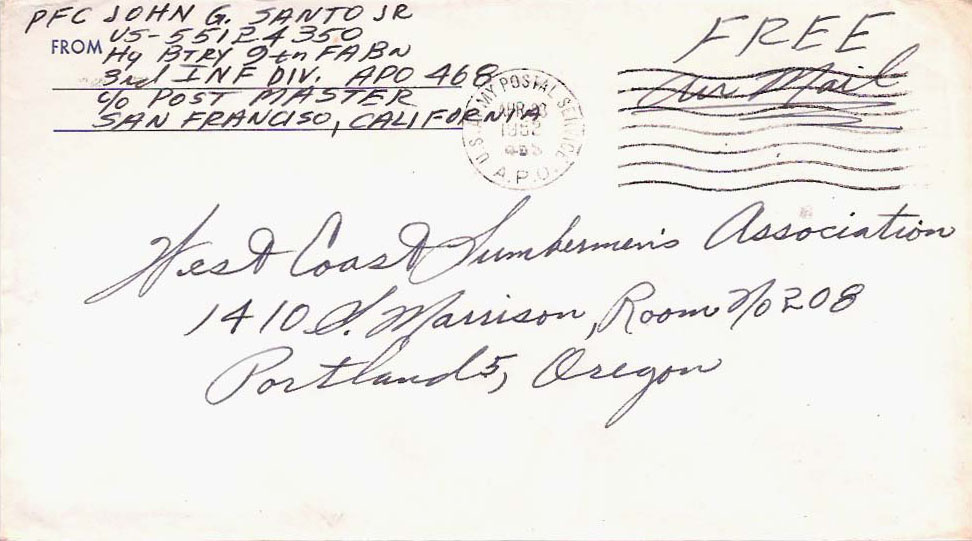 PFC JOHN G. SANTO JR
US-55124350
FROM
Hq BTRY 9th FABn
3rd INF DIV. APO 468
c/o POST MASTER
SAN FRANCISO, CALIFORNIA
U.S. ARMY POSTAL SERVICE
APR 28
1952
A.P.O.
FREE
Air Mail
West Coast Lumbermen's Association
1410 S. Marrison, Room No 208
Portland 5, Oregon